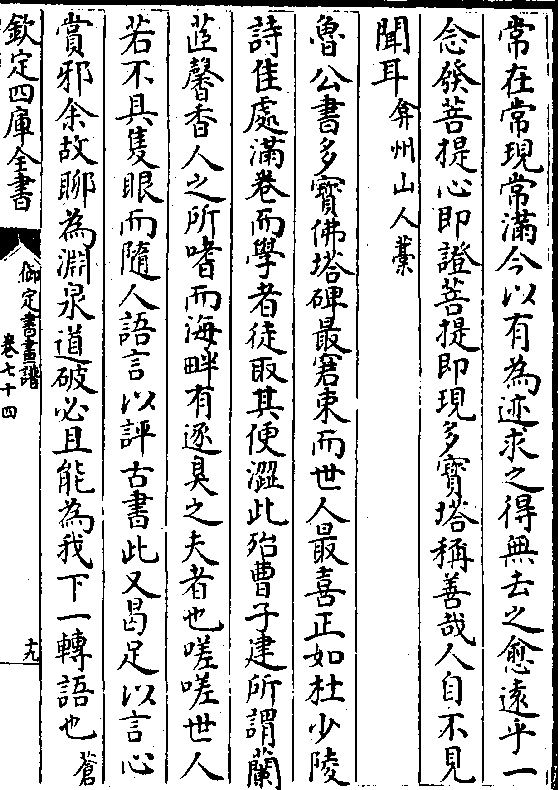 常在常現常滿今以有為迹求之得無去之愈遠乎一
念發菩提心即證菩提即現多寶塔稱善哉人自不見
聞耳弇州山人藁
魯公書多寶佛塔碑最窘束而世人最喜正如杜少陵
詩佳處滿卷而學者徒取其便澀此殆曹子建所謂蘭
茝馨香人之所嗜而海畔有逐臭之夫者也嗟嗟世人
若不具隻眼而隨人語言以評古書此又曷足以言心
賞邪余故聊為淵泉道破必且能為我下一轉語也蒼
欽定四庫全書
御定書畫譜
卷七十四
十九